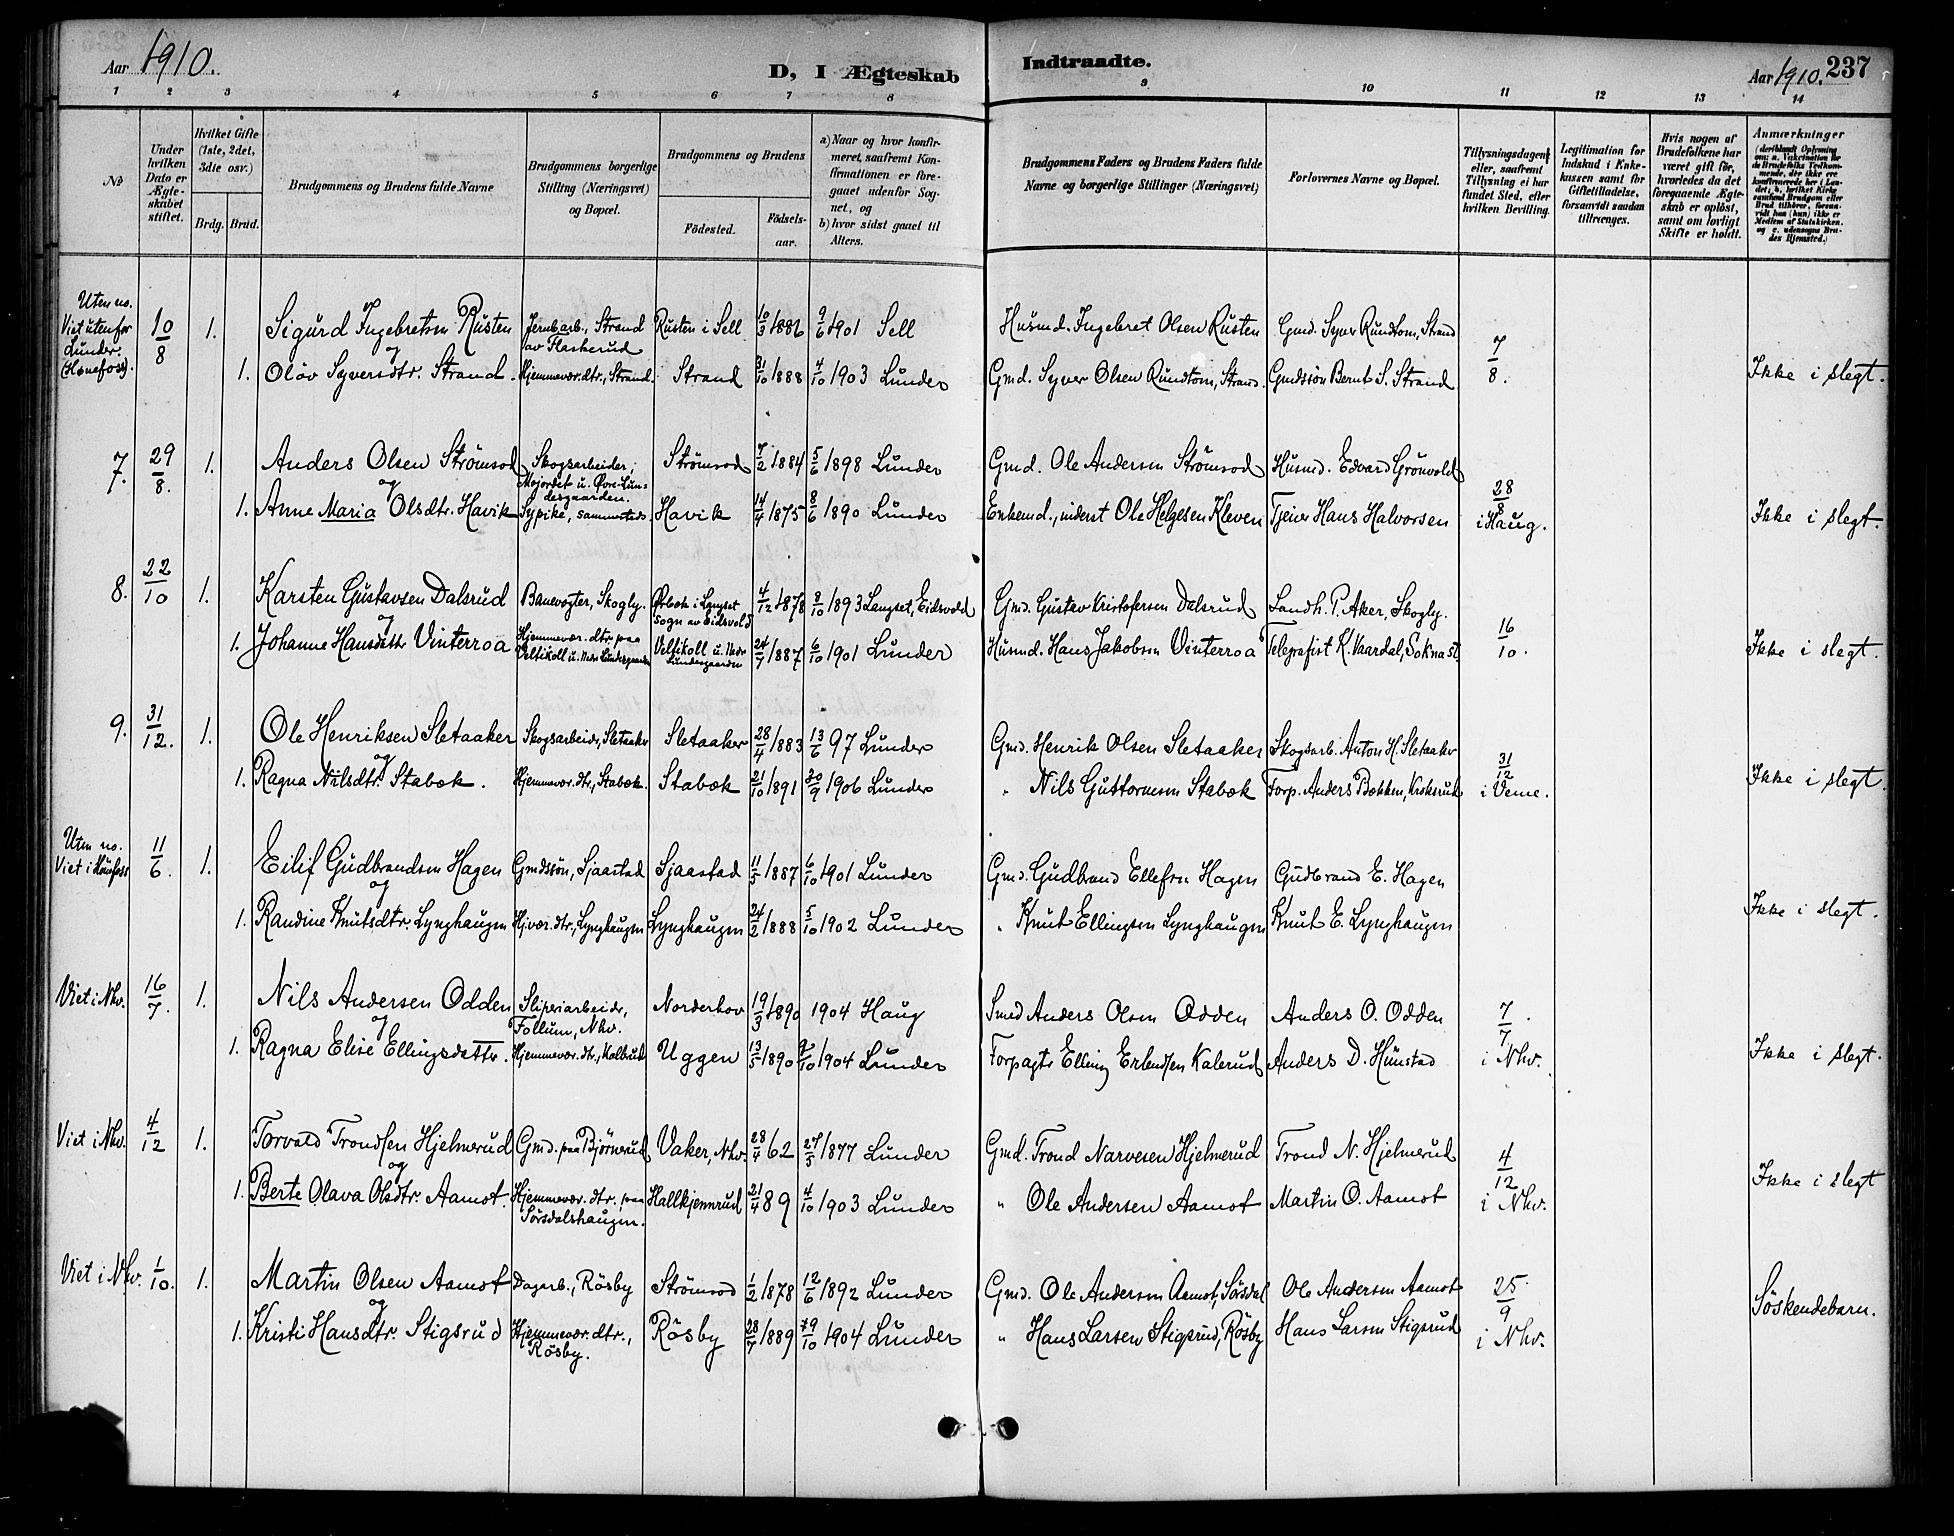 Aar 1910.
D, I Ægteskab
Indtraadte.
Aar 1910. 237
1 2 3 4 5 6 7 8 9 10 11 12 13 14
No
Under hvilken Dato er Ægteskabet stiftet.
Hvilket Gifte (1ste, 2det, 3die osv.)
Brdg. Brud.
Brudgommens og Brudens fulde Navne
Brudgommens borgerlige Stilling (Næringsvei) og Bopæl.
Brudgommens og Brudens
Födested.
Födselsaar.
a) Naar og hvor konfirmeret, saafremt Konfirmationen er foregaaet udenfor Sognet, og
b) hvor sidst gaaet til Alters.
Brudgommens Faders og Brudens Faders fulde Navne og borgerlige Stillinger (Næringsvei)
Forlovernes Navne og Bopæl.
Tillysningsdagen, eller, saafremt Tillysning ei har fundet Sted, efter hvilken Bevilling.
Legitimation for Indskud i Enkekassen samt for Giftetilladelse, forsaavidt saadan tiltrænges.
Hvis nogen af Brudefolkene har været gift før, hvorledes da det foregaaende Ægteskab er opløst, samt om lovligt Skifte er holdt.
Anmærkninger
Uten no. Viet utenfor Lunder. (Hønefoss). 10/8 1. Sigurd Ingebretsen Rusten Jernb.arb., Strand av Flaskerud Rusten i Sell 10/3 1886 9/6 1901 Sell Husmd. Ingebret Olsen Rusten Gmd. Syver Rundtom, Strand 7/8.
og
1. Olöv Syversdtr. Strand. Hjemmevær. dtr., Strand. Strand 31/10 1888 4/10 1903 Lunder Gmd. Syver Olsen Rundtom, Strand. Gmdssön Bernt S. Strand Ikke i slegt.
7. 29/8. 1. Anders Olsen Strömsod Skogsarbeider, Mojordet u. Övre Lundesgaarden. Strömsod 7/2 1884 5/6 1898 Lunder Gmd. Ole Andersen Strömsod Husmd. Edvard Grönvold 28/8 i Haug.
og
1. Anne Maria Olsdtr. Havik Sypike, sammesteds. Havik 14/4 1875 8/6 1890 Lunder Enkemd., inderst Ole Helgesen Kleven Tjener Hans Halvorsen Ikke i slegt.
8. 22/10 1. Karsten Gustavsen Dalsrud Banevogter, Skogly. Ørbæk i Langset sogn av Eidsvold 4/12 1878 8/10 1893 Langset, Eidsvold Gmd. Gustav Kristofersen Dalsrud Landh. P. Aker, Skogly. 16/10.
og
1. Johanne Hansdatter Vinterroa Hjemmevær. dtr. paa Veltikoll u. Nedre Lundesgaarden Veltikoll u. Nedre Lundesgaarden 24/7 1887 6/10 1901 Lunder Husmd. Hans Jakobsen Vinterroa Telegrafist K. Vaardal, Sokna st. Ikke i slegt.
9. 31/12. 1. Ole Henriksen Sletaaker Skogsarbeider, Sletaaker Sletaaker 28/4 1883 13/6 97 Lunder Gmd. Henrik Olsen Sletaaker Skogsarb. Anton H. Sletaaker 31/12 i Veme.
og
1. Ragna Nilsdtr. Stabæk. Hjemmevær. dtr., Stabæk. Stabæk 21/10 1891 30/9 1906 Lunder " Nils Guttormsen Stabæk Forp. Anders Bækken, Kroksrud Ikke i slegt.
Uten no. Viet i Hönefoss 11/6. 1. Eilif Gudbrandsen Hagen Gmdssön, Sjaastad Sjaastad 11/5 1887 6/10 1901 Lunder Gmd. Gudbrand Ellefsen Hagen Gudbrand E. Hagen
og
1. Randine Knutsdtr. Lynghaugen Hj.vær. dtr., Lynghaugen Lynghaugen 24/2 1888 5/10 1902 Lunder " Knut Ellingsen Lynghaugen Knut E. Lynghaugen Ikke i slegt.
Viet i Nhv. 16/7. 1. Nils Andersen Odden Sliperiarbeider, Follum, Nhv. Norderhov 19/3 1890 1904 Haug Smed Anders Olsen Odden Anders O. Odden 7/7 i Nhv.
og
1. Ragna Elise Ellingsdatter. Hjemmevær. dtr., Kolbrud Uggen 13/5 1890 2/10 1904 Lunder Forpagter Elling Erlendsen Kalerud Anders D. Hunstad Ikke i slegt.
Viet i Nhv. 4/12 1. Torvald Trondsen Hjelmerud Gmd. paa Bjørnerud Vaker, Nhv. 28/4 62 27/5 1877 Lunder Gmd. Trond Narvesen Hjelmerud Trond N. Hjelmerud 4/12 i Nhv.
og
1. Berte Olava Olsdtr. Aamot. Hjemmevær. dtr. paa Sörsdalshaugen. Hallkjennrud 21/4 89 4/10 1903 Lunder " Ole Andersen Aamot Martin O. Aamot Ikke i slegt
Viet i Nhv. 1/10. 1. Martin Olsen Aamot Dagarb., Rösby Strömsod 1/2 1878 12/6 1892 Lunder Gmd. Ole Andersen Aamot, Sörsdal Ole Andersen Aamot 25/9 i Nhv.
og
1. Kristi Hansdtr. Stigsrud Hjemmevær. dtr., Rösby. Rösby 28/7 1889 /10 1904 Lunder " Hans Larsen Stigsrud, Rösby Hans Larsen Stigsrud Söskendebarn.